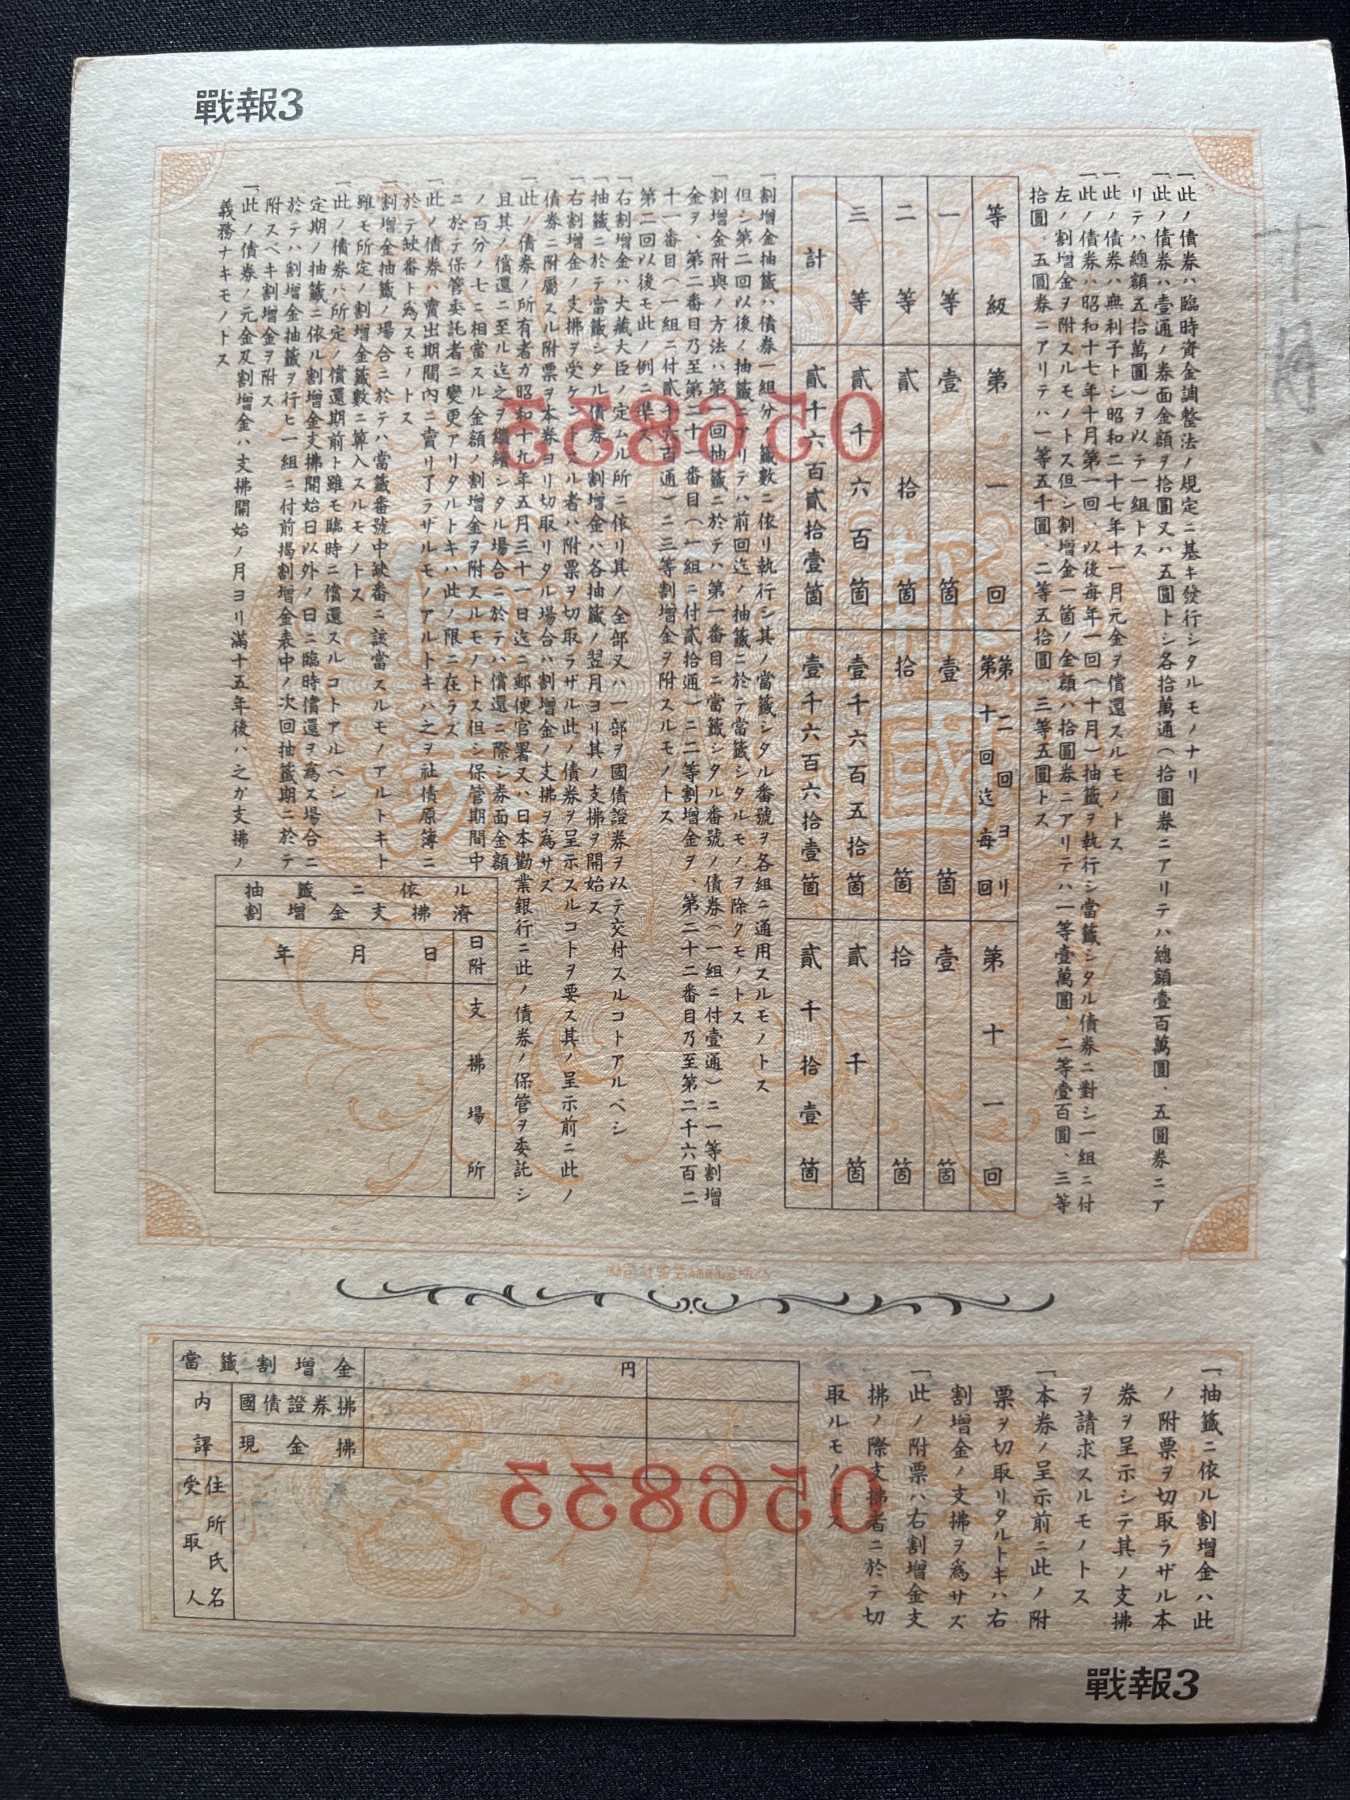 戰報3
「此ノ債券ハ臨時資金調整法ノ規定ニ基キ發行シタルモノナリ
「此ノ債券ハ壹通ノ券面金額ヲ拾圓又ハ五圓トシ各拾萬通(拾圓券ニアリテハ總額壹百萬圓、五圓券ニア
リテハ總額五拾萬圓)ヲ以テ一組トス
「此ノ債券ハ無利子トシ昭和二十七年十一月元金ヲ償還スルモノトス
「此ノ債券ハ昭和十七年十月第一回、以後每年一回(十月)抽籤ヲ執行シ當籤シタル債券ニ對シ一組ニ付
左ノ割增金ヲ附スルモノトス但シ割增金一箇ノ金額ハ拾圓券ニアリテハ一等壹萬圓、二等壹百圓、三等
拾圓、五圓券ニアリテハ一等五千圓、二等五拾圓、三等五圓トス
等級 第一回 第二回ヨリ第十回迄每回 第十一回
一等 壹箇 壹箇 壹箇
二等 貳拾箇 拾箇 拾箇
三等 貳千六百箇 壹千六百五拾箇 貳千箇
計 貳千六百貳拾壹箇 壹千六百六拾壹箇 貳千拾壹箇
「割增金抽籤ハ債券一組分ノ籤數ニ依リ執行シ其ノ當籤シタル番號ヲ各組ニ通用スルモノトス
但シ第二回以後ノ抽籤ニアリテハ前回迄ノ抽籤ニ於テ當籤シタルモノヲ除クモノトス
「割增金附與ノ方法ハ第一回抽籤ニ於テハ第一番目ニ當籤シタル番號ノ債券(一組ニ付壹通)ニ一等割增
金ヲ、第二番目乃至第二十一番目(一組ニ付貳拾通)ニ二等割增金ヲ、第二十二番目乃至第二千六百二
十一番目(一組ニ付貳千六百通)ニ三等割增金ヲ附スルモノトス
第二回以後モ此ノ例ニ準ス
「右割增金ハ大藏大臣ノ定ムル所ニ依リ其ノ全部又ハ一部ヲ國債證券ヲ以テ交付スルコトアルベシ
「抽籤ニ於テ當籤シタル債券ノ割增金ハ各抽籤ノ翌月ヨリ其ノ支拂ヲ開始ス
「右割增金ノ支拂ヲ受ケントスル者ハ附票ヲ切取ラザル此ノ債券ヲ呈示スルコトヲ要ス其ノ呈示前ニ此ノ
債券ニ附屬スル附票ヲ本券ヨリ切取リタル場合ハ割增金ノ支拂ヲ爲サズ
「此ノ債券ノ所有者ガ昭和十九年五月三十一日迄ニ郵便官署又ハ日本勸業銀行ニ此ノ債券ノ保管ヲ委託シ
且其ノ償還ニ至ル迄之ヲ繼續シタル場合ニ於テハ償還ニ際シ券面金額
ノ百分ノ七ニ相當スル金額ノ割增金ヲ附スルモノトス但シ保管期間中
ニ於テ保管委託者ニ變更アリタルトキハ此ノ限ニ在ラズ
「此ノ債券ハ賣出期間內ニ賣リ了ラザルモノアルトキハ之ヲ社債原簿ニ
於テ缺番ト爲スモノトス
「割增金抽籤ノ場合ニ於テハ當籤番號中缺番ニ該當スルモノアルトキト
雖モ所定ノ割增金籤數ニ算入スルモノトス
「此ノ債券ハ所定ノ償還期前ト雖モ臨時ニ償還スルコトアルベシ
定期ノ抽籤ニ依ル割增金支拂開始日以外ノ日ニ臨時償還ヲ爲ス場合ニ
於テハ割增金抽籤ヲ行ヒ一組ニ付前揭割增金表中ノ次回抽籤期ニ於テ
附スベキ割增金ヲ附ス
「此ノ債券ノ元金及割增金ハ支拂開始ノ月ヨリ滿十五年後ハ之ガ支拂ノ
義務ナキモノトス
抽籤ニ依ル
割增金支拂濟
日附 年 月 日
支拂場所
056833
報國
債券
十月
「抽籤ニ依ル割增金ハ此
ノ附票ヲ切取ラザル本
券ヲ呈示シテ其ノ支拂
ヲ請求スルモノトス
「本券ノ呈示前ニ此ノ附
票ヲ切取リタルトキハ右
割增金ノ支拂ヲ爲サズ
「此ノ附票ハ右割增金支
拂ノ際支拂者ニ於テ切
取ルモノトス
當籤割增金 円
內譯 國債證券拂
現金拂
受取人 住所氏名
056833
戰報3